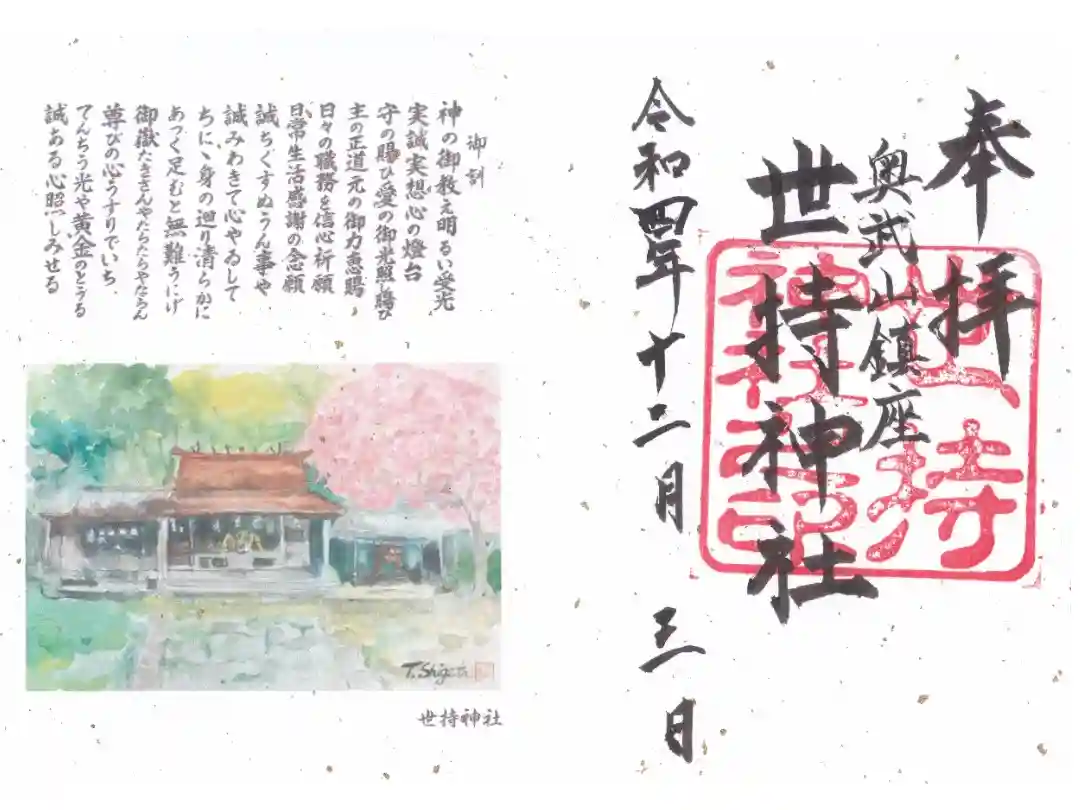 奉拝
奥武山鎮座
世持神社
令和四年十二月三日
世持
神社印
御訓
神の御教え明るい受光
実誠実想心の燈台
守の賜ひ愛の御光照し賜ひ
主の正道元の御力恵賜
日々の職務を信心祈願
日常生活感謝の念願
誠ちくすぬうん事や
誠みわきて心やゐして
ちに丶身の廻り清らかに
あつく足むと無難うにげ
御嶽たきさんやたらたらやならん
尊びの心うすりでいち、
てんちう光や黄金のとうる
誠ある心照しみせる
T. Shigeta
世持神社